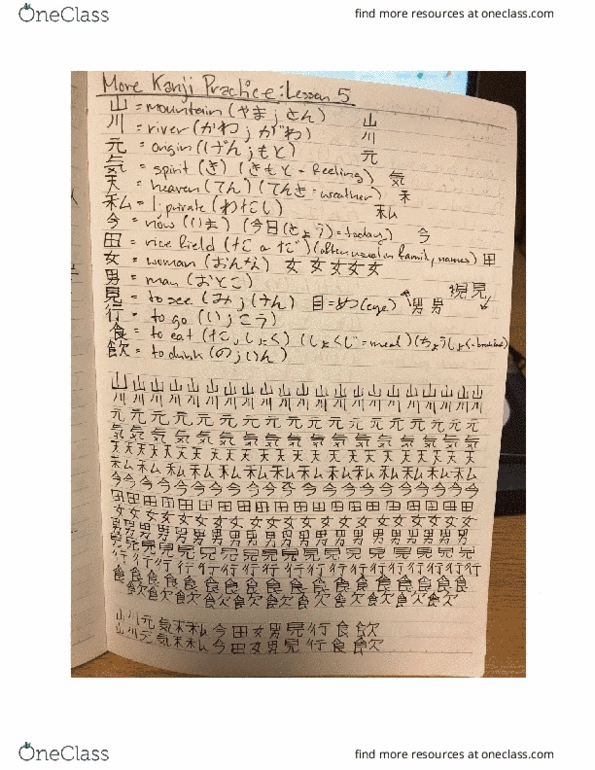 OneClass
find more resources at oneclass.com
More Kanji Practice: Lesson 5
山 = mountain (やま; さん) 山
川 = river (かわ; がわ) 川
元 = origin (げん; もと) 元
気 = spirit (き) (きもと = feeling) 気
天 = heaven (てん) (てんき = weather) 天
私 = I; private (わたし) 私
今 = now (いま) (今日(きょう) = today) 今
田 = rice field (た or だ) (often used in family names) 田
女 = woman (おんな) 女 女 女 女 女
男 = man (おとこ) 男 男
見 = to see (み; けん) 目 = めつ (eye) 見
行 = to go (い; こう)
食 = to eat (た, しょく) (しょくじ = meal) (ちょうしょく = breakfast)
飲 = to drink (の; いん)
山 山 山 山 山 山 山 山 山 山 山 山 山 山 山 山 山 山 山
川 川 川 川 川 川 川 川 川 川 川 川 川 川 川 川 川 川 川
元 元 元 元 元 元 元 元 元 元 元 元 元 元 元 元 元
気 気 気 気 気 気 気 気 気 気 気 気 気 気 気 気 気
天 天 天 天 天 天 天 天 天 天 天 天 天 天 天 天 天
私 私 私 私 私 私 私 私 私 私 私 私 私 私 私 私
今 今 今 今 今 今 今 今 今 今 今 今 今 今 今 今 今 今
田 田 田 田 田 田 田 田 田 田 田 田 田 田 田 田 田 田
女 女 女 女 女 女 女 女 女 女 女 女 女 女 女 女 女 女
男 男 男 男 男 男 男 男 男 男 男 男 男 男 男 男 男 男
見 見 見 見 見 見 見 見 見 見 見 見 見 見 見 見 見
行 行 行 行 行 行 行 行 行 行 行 行 行 行 行 行 行
食 食 食 食 食 食 食 食 食 食 食 食 食 食 食 食 食
飲 飲 飲 飲 飲 飲 飲 飲 飲 飲 飲 飲 飲
山 川 元 気 天 私 今 田 女 男 見 行 食 飲
山 川 元 気 天 私 今 田 女 男 見 行 食 飲
OneClass
find more resources at oneclass.com